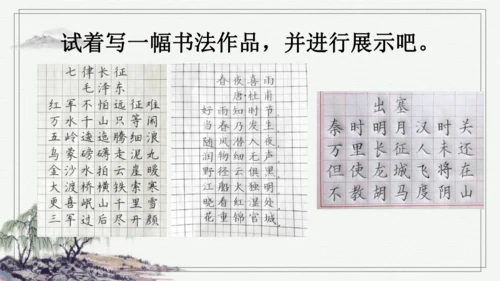 试着写一幅书法作品，并进行展示吧。
七律长征
毛泽东
红军不怕远征难
万水千山只等闲
五岭逶迤腾细浪
乌蒙磅礴走泥丸
金沙水拍云崖暖
大渡桥横铁索寒
更喜岷山千里雪
三军过后尽开颜
春夜喜雨
唐·杜甫
好雨知时节
当春乃发生
随风潜入夜
润物细无声
野径云俱黑
江船火独明
晓看红湿处
花重锦官城
出塞
秦时明月汉时关
万里长征人未还
但使龙城飞将在
不教胡马度阴山